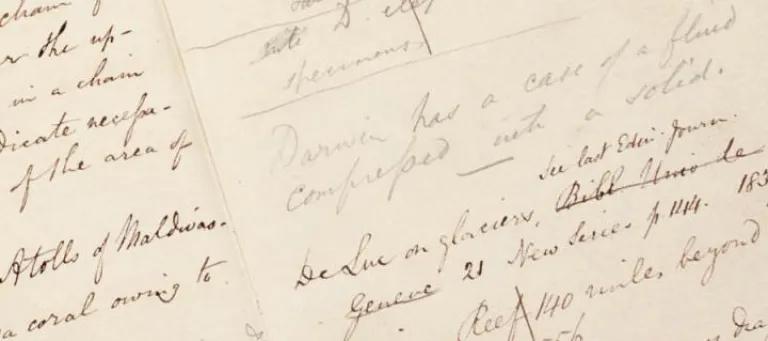 chain of
r the up-
in a chain
dicate necessa-
of the area of
Atolls of Maldivas.
a coral owing to
specimens.
Darwin has a case of a fluid
compressed into a solid.
See last Edin. Journ.
De Luc on glaciers. Bibl Univ de
Geneve 21 New Series p. 414. 183
Reef 140 miles beyond